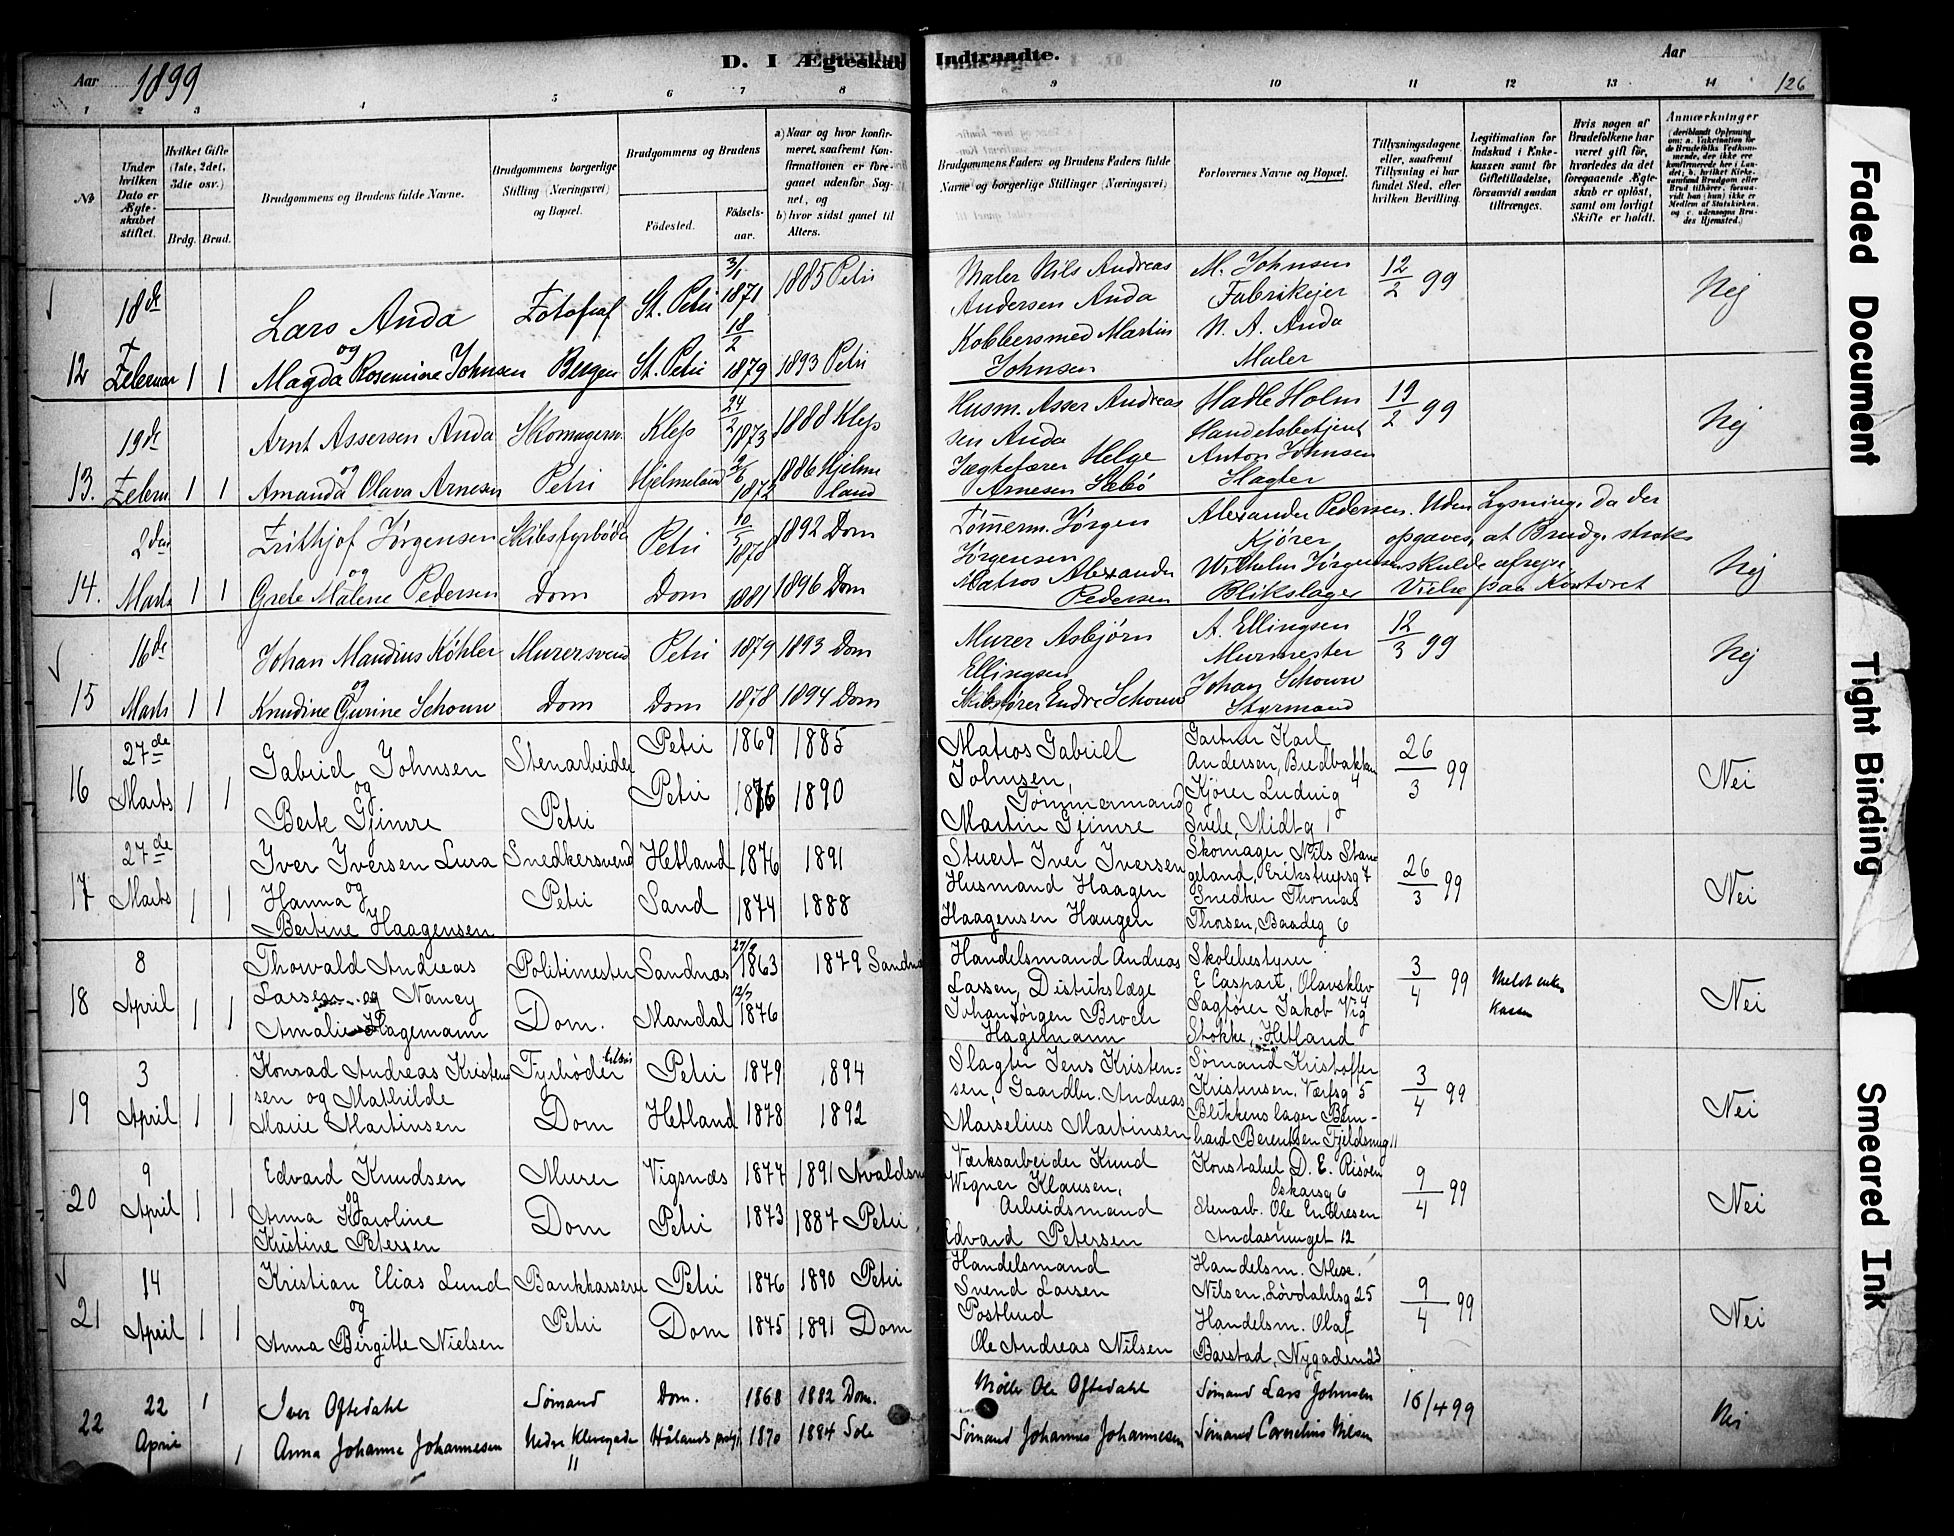 Aar 1899
D. I Ægteskab Indtraadte.
Aar
126
1 2 3 4 5 6 7 8 9 10 11 12 13 14
No
Under hvilken Dato er Ægteskabet stiftet.
Hvilket Gifte (1ste, 2det, 3die osv.)
Brdg. Brud.
Brudgommens og Brudens fulde Navne.
Brudgommens borgerlige Stilling (Næringsvei) og Bopæl.
Brudgommens og Brudens
Fødested.
Fødselsaar.
a) Naar og hvor konfirmeret, saafremt Konfirmationen er foregaaet udenfor Sognet, og
b) hvor sidst gaaet til Alters.
Brudgommens Faders og Brudens Faders fulde Navne og borgerlige Stillinger (Næringsvei)
Forlovernes Navne og Bopæl.
Tillysningsdagene eller, saafremt Tillysning ei har fundet Sted, efter hvilken Bevilling.
Legitimation for Indskud i Enkekassen samt for Giftetilladelse, forsaavidt saadan tiltrænges.
Hvis nogen af Brudefolkene har været gift før, hvorledes da det foregaaende Ægteskab er opløst, samt om lovligt Skifte er holdt.
Anmærkninger
12 18de Februar 1 1
Lars Anda
og
Magda Rosemine Johnsen
Fotograf
Bergen
St. Petri 3/1 1871 1885 Petri
St. Petri 18/2 1879 1893 Petri
Maler Nils Andreas
Andersen Anda
Kobbersmed Martin
Johnsen
M. Johnsen
Fabrikejer
N. A. Anda
Maler
12/2 99
Nej
13. 19de Februar 1 1
Arnt Assersen Anda
og
Amanda Olava Arnesen
Skomagersv.
Petri
Klep 24/2 1873 1888 Klep
Hjelmeland 1872 1886 Hjelmeland
Husm. Asser Andreas
sen Anda
Jægtefører Helge
Arnesen Sæbö
Hadle Holm
Handelsbetjent
Anton Johnsen
Slagter
19/2 99
Nej
14. 2den Marts 1 1
Frithjof Jörgensen
og
Grete Malene Pedersen
Skibsfyrböder
Dom
Petri 10/5 1878 1892 Dom
Dom 1881 1896 Dom
Tömmerm. Jörgen
Jörgensen
Matros Alexander
Pedersen
Alexander Pedersen.
Kjörer
Wilhelm Jörgensen
Blikslager
Uden Lysning, da der
opgaves, at Brudg. straks
skulde afrejse
Vielse paa Kontoret
Nej
15 16de Marts 1 1
Johan Maudius Köhler
og
Knudine Gurine Schouw
Murersvend
Dom
Petri 1879 1893 Dom
Dom 1878 1894 Dom
Murer Asbjörn
Ellingsen
Skibsförer Endre Schouw
A. Ellingsen
Murmester
Johan Schouw
Styrmand
12/3 99
Nej
16 27de Marts 1 1
Gabriel Johnsen
og
Berte Gjimre
Stenarbeider
Petri
Petri 1869 1885
Petri 1876 1890
Matros Gabriel
Johnsen,
Tømmermand
Martin Gjimre
Gartner Karl
Andersen, Bredbakken
4
Kjører Ludvig
Svele, Midtg 1
26/3 99
Nei
17 27de Marts 1 1
Iver Iversen Lura
og
Hanna
Bertine Haagensen
Snedkersvend
Petri
Hetland 1876 1891
Sand 1874 1888
Stuert Iver Iversen
Husmand Haagen
Haagensen Haugen
Skomager Nils Stan
geland, Erikstrupsg 7
Snedker Thomas
Thorsen, Baadeg 6
26/3 99
Nei
18 8 April 1 1
Thorvald Andreas
Larsen og Nancy
Amalie Hagemann
Politimester
Dom.
Sandnæs 27/9 1863 1879 Sandnæs
Mandal 12/7 1876
Handelsmand Andreas
Larsen, Distriktslæge
Johan Jørgen Broch
Hagemann
Skolebestyrer
E Caspari, Olavsklev
Sagfører Jakob Vig
Stokke, Hetland
3/4 99
Meldt enke
kassen
Nei
19 3 April 1 1
Konrad Andreas Kristen
sen og Mathilde
Marie Martinsen
Fyrbøder tilsøs
Dom
Petri 1879 1894
Hetland 1878 1892
Slagter Jens Kristen=
sen, Gaardbr. Andreas
Marselius Martinsen
Sømand Kristoffer
Kristensen, Værfsg 5
Blikkenslager Bern-
hard Berentsen Fjeldsmug 11
3/4 99
Nei
20 9 April 1 1
Edvard Knudsen
og
Anna Karoline
Kristine Petersen
Murer
Dom
Vigsnæs 1877 1891 Avaldsn
Petri 1873 1887 Petri
Værksarbeider Knud
Wegner Klausen,
Arbeidsmand
Edvard Petersen
Konstabel D. E. Risøen
Oskarsg 6
Stenarb. Ole Endresen
Andasmuget 12
9/4 99
Nei
21 14 April 1 1
Kristian Elias Lund
og
Anna Birgitte Nielsen
Bankkasserer
Petri
Petri 1876 1890 Petri
Dom 1875 1891 Dom
Handelsmand
Svend Larsen
Postbud
Ole Andreas Nilsen
Handelsm. Alex.
Nilsen, Lövdahlsg 25
Handelsm. Olaf
Barstad, Nygaden 23
9/4 99
Nei
22 22 April 1 1
Iver Oftedahl
Anna Johanne Johannesen
Sömand
Nedre Klevegade
11
Dom. 1868 1882 Dom.
Hålands prstgj 1870 1884 Sole
Møller Ole Oftedahl
Sömand Johannes Johannesen
Sömand Lars Johnsen
Sömand Cornelius Nilsen
16/4 99
Nei
Faded Document
Tight Binding
Smeared Ink